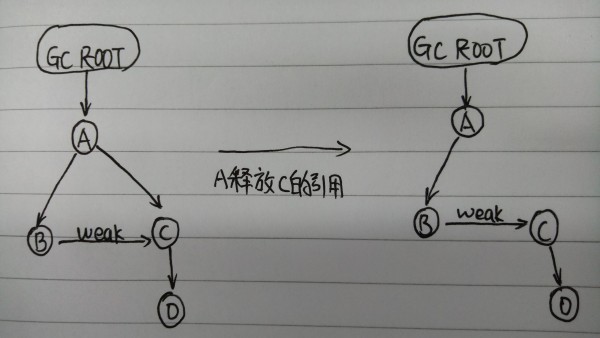 GC ROOT
A
B
weak
C
D
A释放C的引用
GC ROOT
A
B
weak
C
D